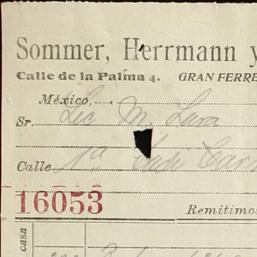 Sommer, Herrmann y
Calle de la Palma 4. GRAN FERRE
México,
Sr. Lic M. Lara
Calle 1ª
16053
Remitimos
casa